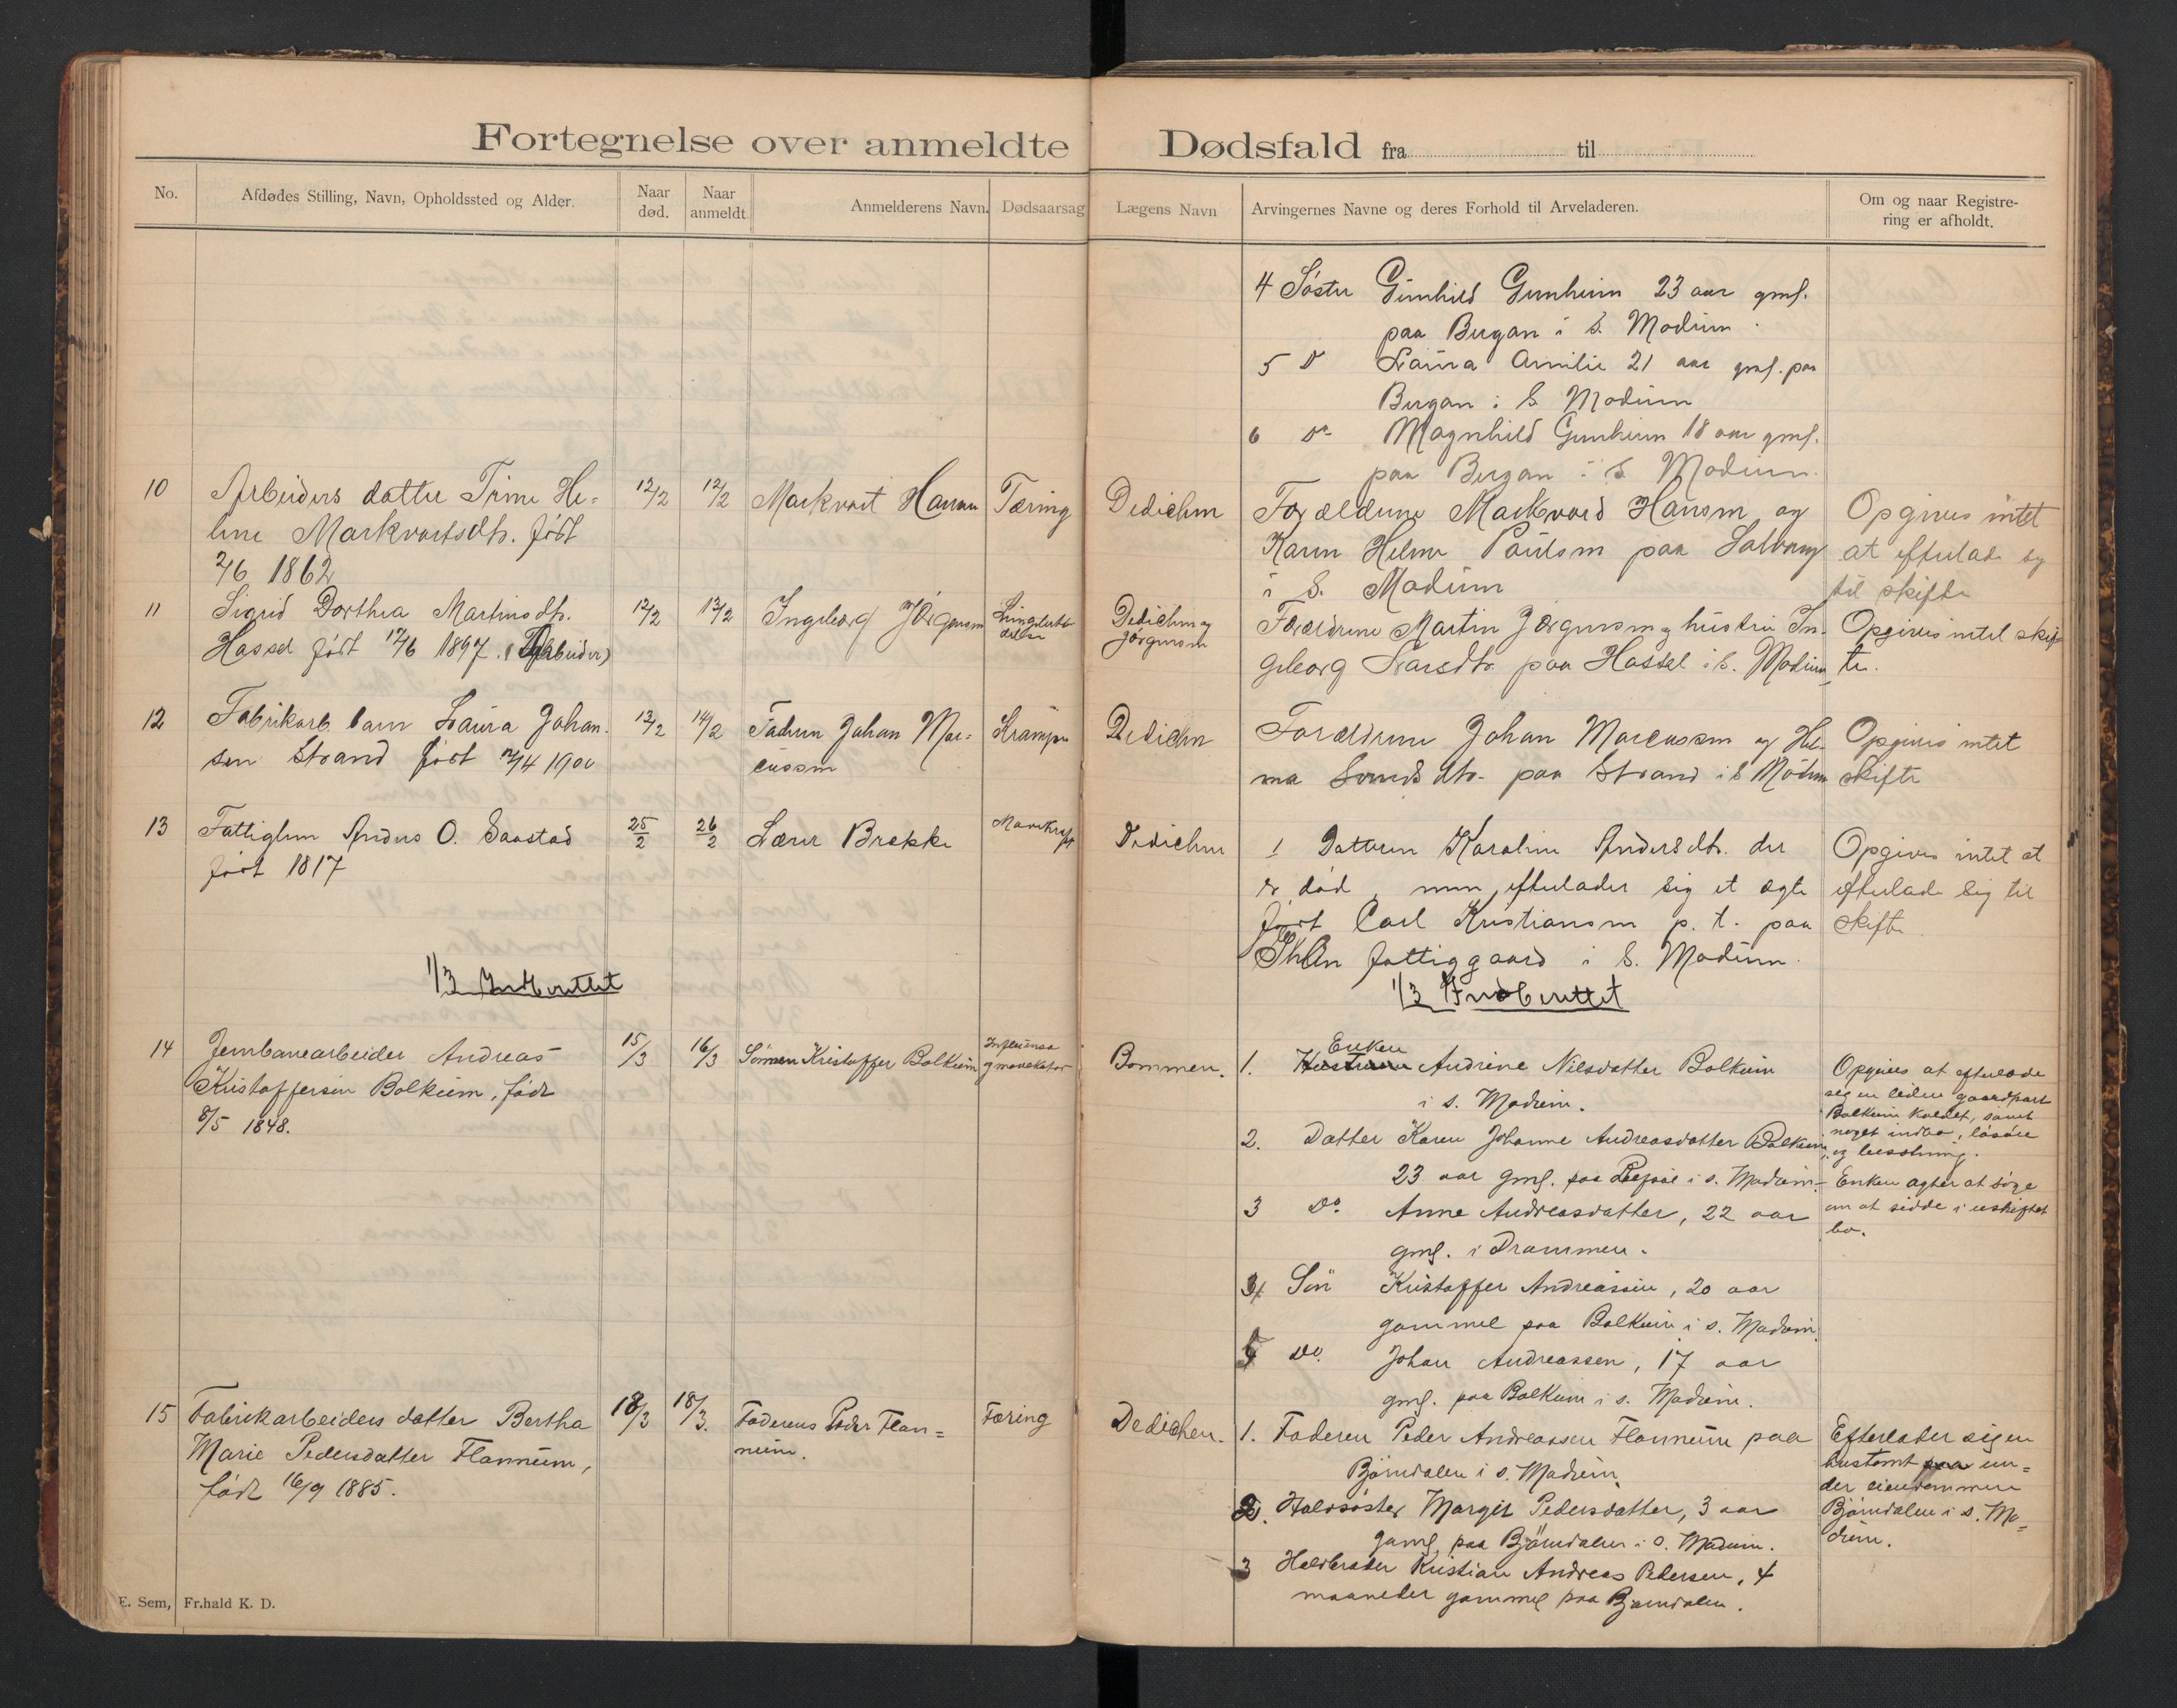 Fortegnelse over anmeldte Dødsfald fra til
No.
Afdødes Stilling, Navn, Opholdssted og Alder.
Naar død.
Naar anmeldt.
Anmelderens Navn.
Dødsaarsag
Lægens Navn
Arvingernes Navne og deres Forhold til Arveladeren.
Om og naar Registre-
ring er afholdt.
4 Søster Gunhild Gunheim 23 aar gml.
paa Bergan i S. Modum
5 Do Laura Amilie 21 aar gml. paa
Bergan i S. Modum
6 Do Magnhild Gunheim 18 aar gml.
paa Bergan i S. Modum.
10
Arbeiders datter Trine He-
line Markvartsdtr. født
1862
12/2
12/2
Markvart Hansen
Tæring
Dedichen
Forældrene Markvard Hansen og
Karen Helene Paulsen paa
i S. Modum
Opgives intet
at efterlade sig
til skifte
11
Sigrid Dorthea Martinsdtr.
Hassel født 1897.
12/2
13/2
Ingeborg Jørgensen
Dedichen og
Jørgensen
Forældrene Martin Jørgensen og hustru In-
geborg Larsdtr. paa Hassel i S. Modum
Opgives intet skif-
te.
12
Fabrikarb. barn Laura Johan-
sen Strand født 1900
13/2
14/2
Faderen Johan Mar-
cussen
Krampe
Dedichen
Forældrene Johan Marcussen og Hel-
ma dtr. paa Strand i S. Modum
Opgives intet
skifte
13
Fattiglem Anders O. Saastad
født 1817
25/2
26/2
Lærer Brekke
Dedichen
1 Datteren Karoline Andersdtr. der
er død, men efterlader sig et ægte
født Carl Kristiansen p. t. paa
fattiggaard i S. Modum.
Opgives intet at
efterlade sig til
skifte
1/3 Indberettet
1/3 Indberettet
14
Jernbanearbeider Andreas
Kristoffersen Bolkeim, født
8/5 1848.
15/3
16/3
Sønnen Kristoffer Bolkeim
Influensa
Bommen.
1. Enken
Hustruen Andrine Nilsdatter Bolkeim
i s. Modum.
2. Datter Karen Johanne Andreasdatter Bolkeim,
23 aar gml. paa i s. Modum.
3 Do. Anne Andreasdatter, 22 aar
gml. i Drammen.
4 Søn Kristoffer Andreassen, 20 aar
gammel paa Bolkeim i s. Modum.
5 Do. Johan Andreassen, 17 aar
gml. paa Bolkeim i s. Modum.
Opgives at efterlade
sig en liden gaardpart
Bolkeim kaldet, samt
noget indbo, løsøre
og besetning.
Enken agter at søge
om at sidde i uskiftet
bo.
15
Fabrikarbeiders datter Bertha
Marie Pedersdatter Flannum,
født 16/9 1885.
18/3
18/3.
Faderens Peder Flan=
num.
Tæring
Dedichen.
1. Faderen Peder Andreassen Flannum paa
Bjørndalen i s. Modum.
2. Halvsøster Margit Pedersdatter, 3 aar
gaml. paa Bjørndalen i s. Modum.
3 Halvbroder Kristian Andreas Pedersen, 4
maaneder gammel paa Bjørndalen.
Efterlader sig en
hustomt un=
der eiendommen
Bjørndalen i s. Mo=
dum.
E. Sem, Fr.hald K. D.